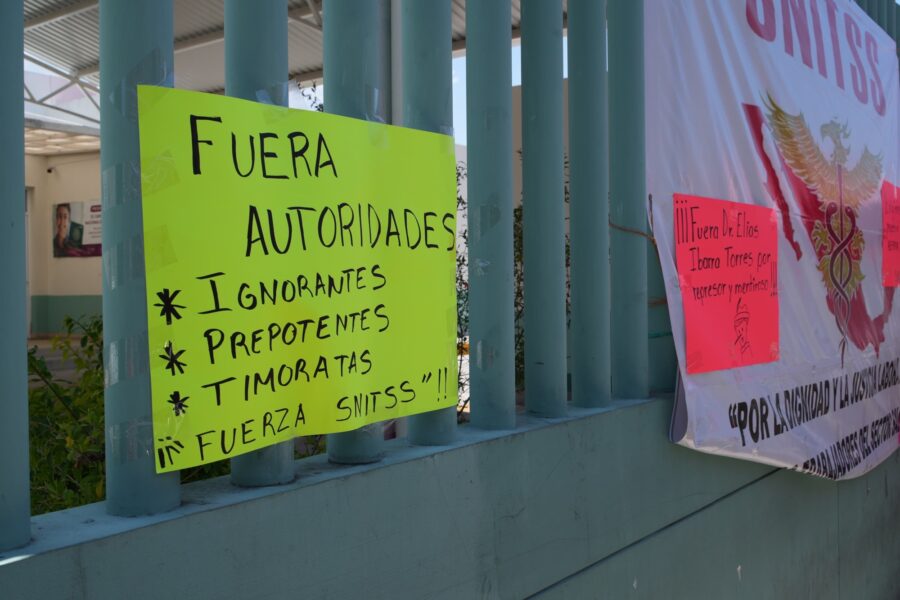 FUERA
AUTORIDADES
* IGNORANTES
* PREPOTENTES
* TIMORATAS
¡¡ FUERZA SNITSS"!!
SNITSS
¡¡¡Fuera Dr. Elías
Ibarra Torres por
represor y mentiroso!!!
"POR LA DIGNIDAD Y LA JUSTICIA LABORAL
TRABAJADORES DEL SECTOR